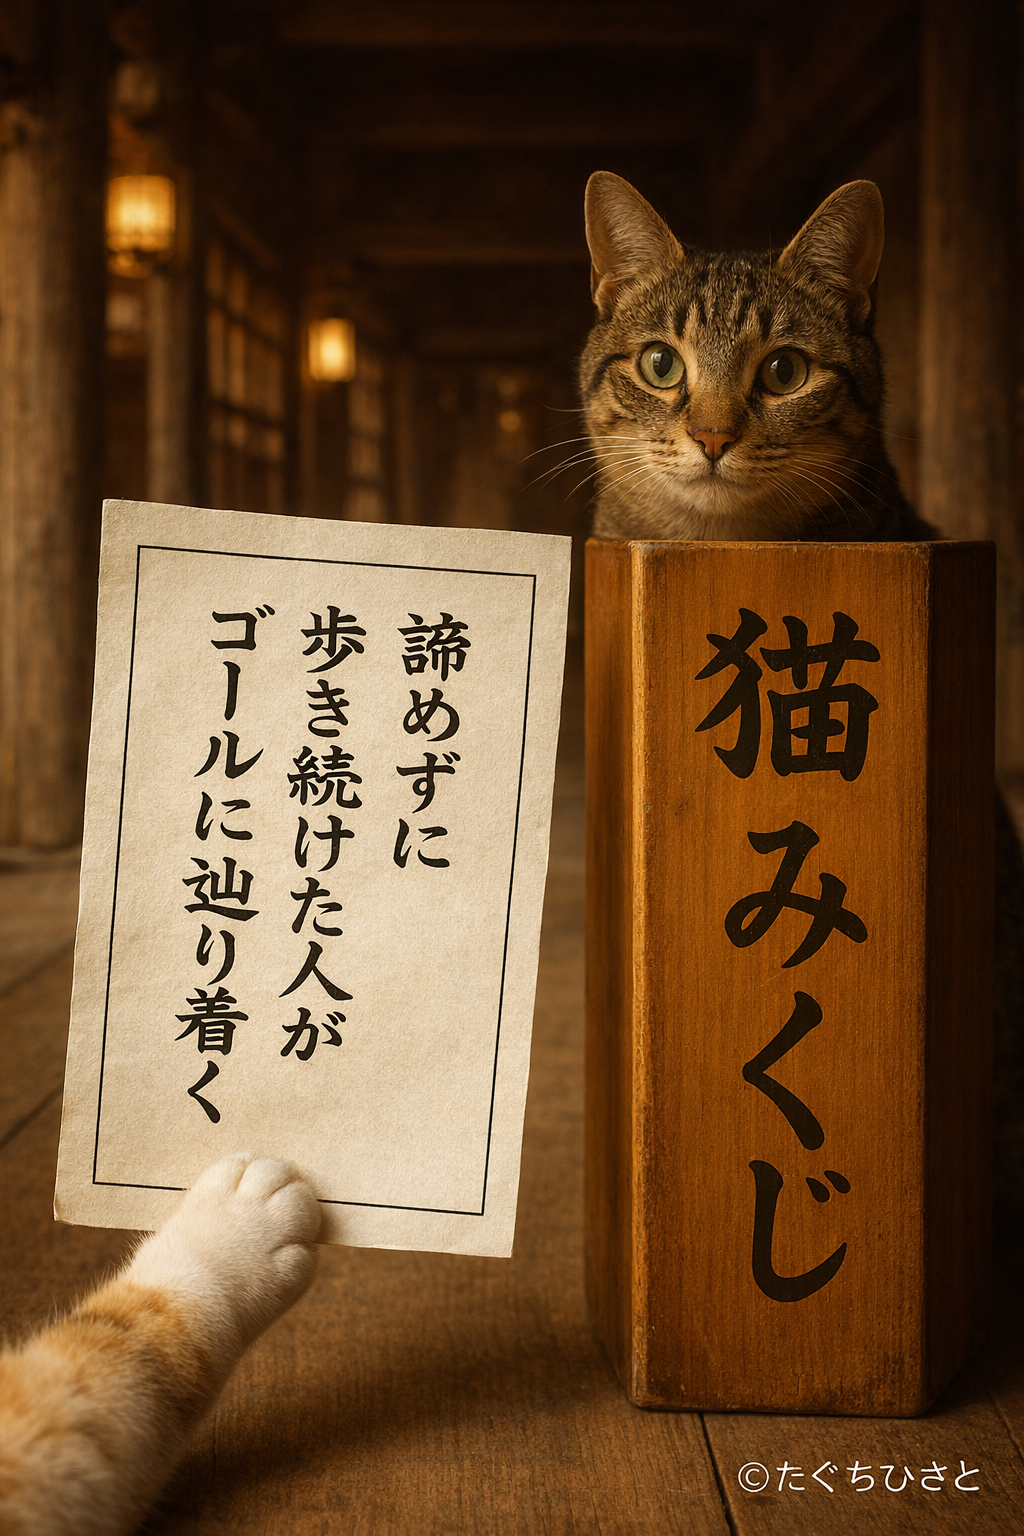 諦めずに
歩き続けた人が
ゴールに辿り着く
猫みくじ
©たぐちひさと